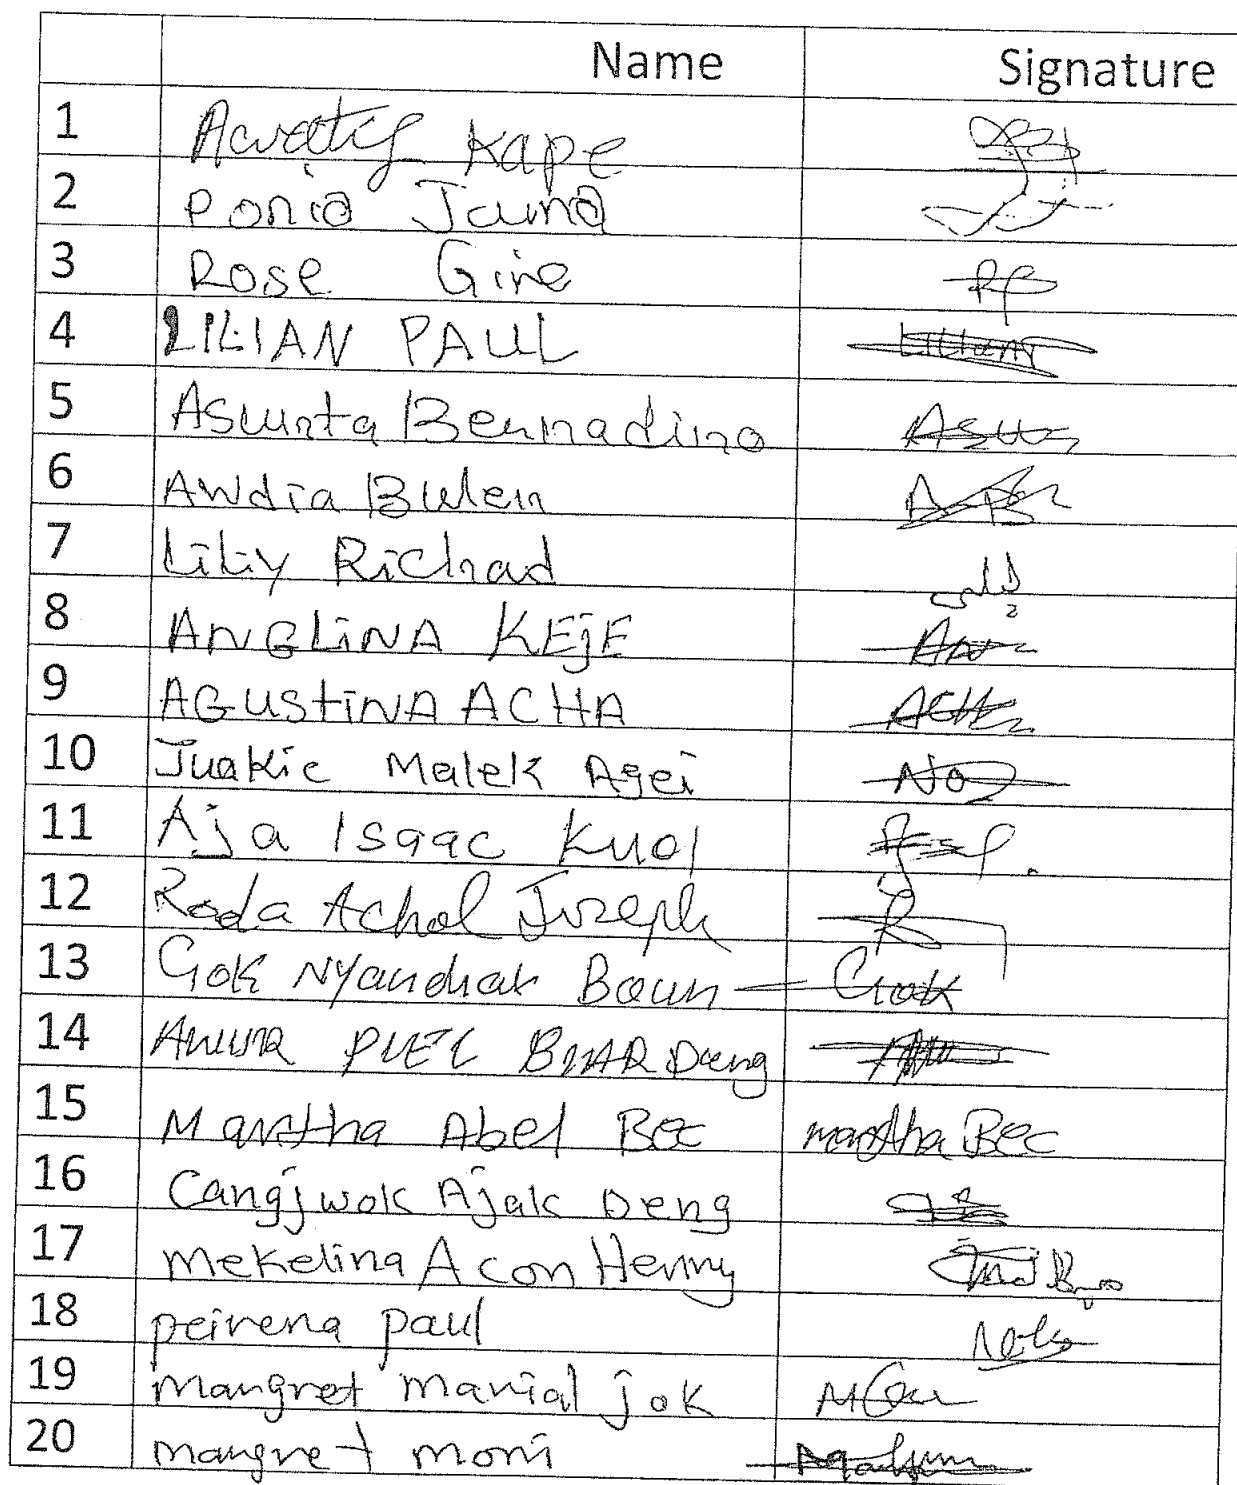 Name Signature
1 Awatif Kape
2 Ponia Juma
3 Rose Gire RG
4 LILIAN PAUL Lilliany
5 Asunta Bernadino Asu
6 Awdia Bulen A B
7 Liliy Richad
8 ANGLINA KEjE An
9 AGUSTINA ACHA ACH
10 Juakic Malek Agei No
11 Aja Isaac Kuol
12 Roda Achol Joseph R
13 Gok Nyandhak Baun - Gok
14 PUEC Deng
15 Martha Abel Bec martha Bec
16 Cangjwok Ajak Deng
17 Mekelina Acon Henny
18 peirena paul
19 Mangret Manial jok
20 mangret moni